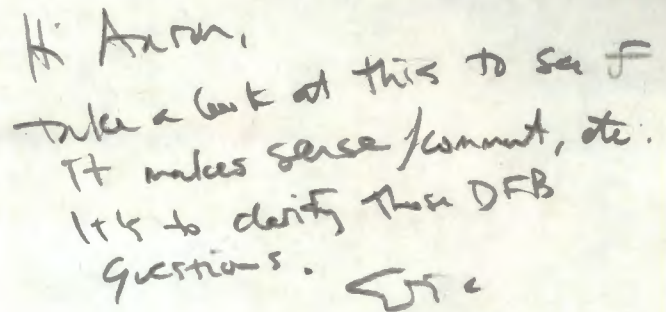 Hi Aaron,
take a look at this to see if
it makes sense/comment, etc.
It's to clarify those DFB
questions.
Eric